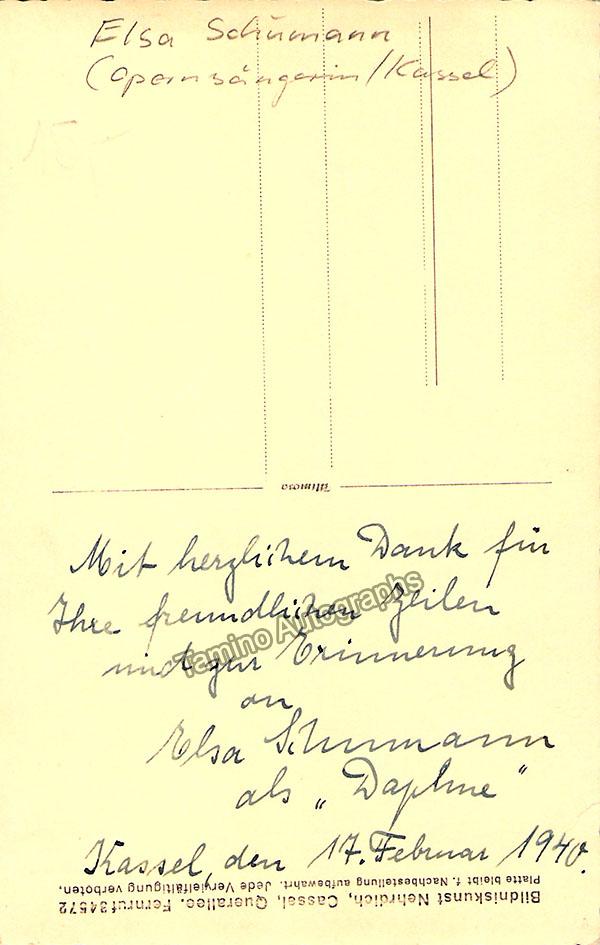 Elsa Schumann
(Opernsängerin/Kassel)
Mimosa
Mit herzlichem Dank für
Ihre freundlichen Zeilen
und zur Erinnerung
an
Elsa Schumann
als „Daphne"
Kassel, den 17. Februar 1940.
Tamino Autographs
Bildniskunst Nehrdich, Cassel, Querallee. Fernruf 34572
Platte bleibt f. Nachbestellung aufbewahrt. Jede Vervielfältigung verboten.